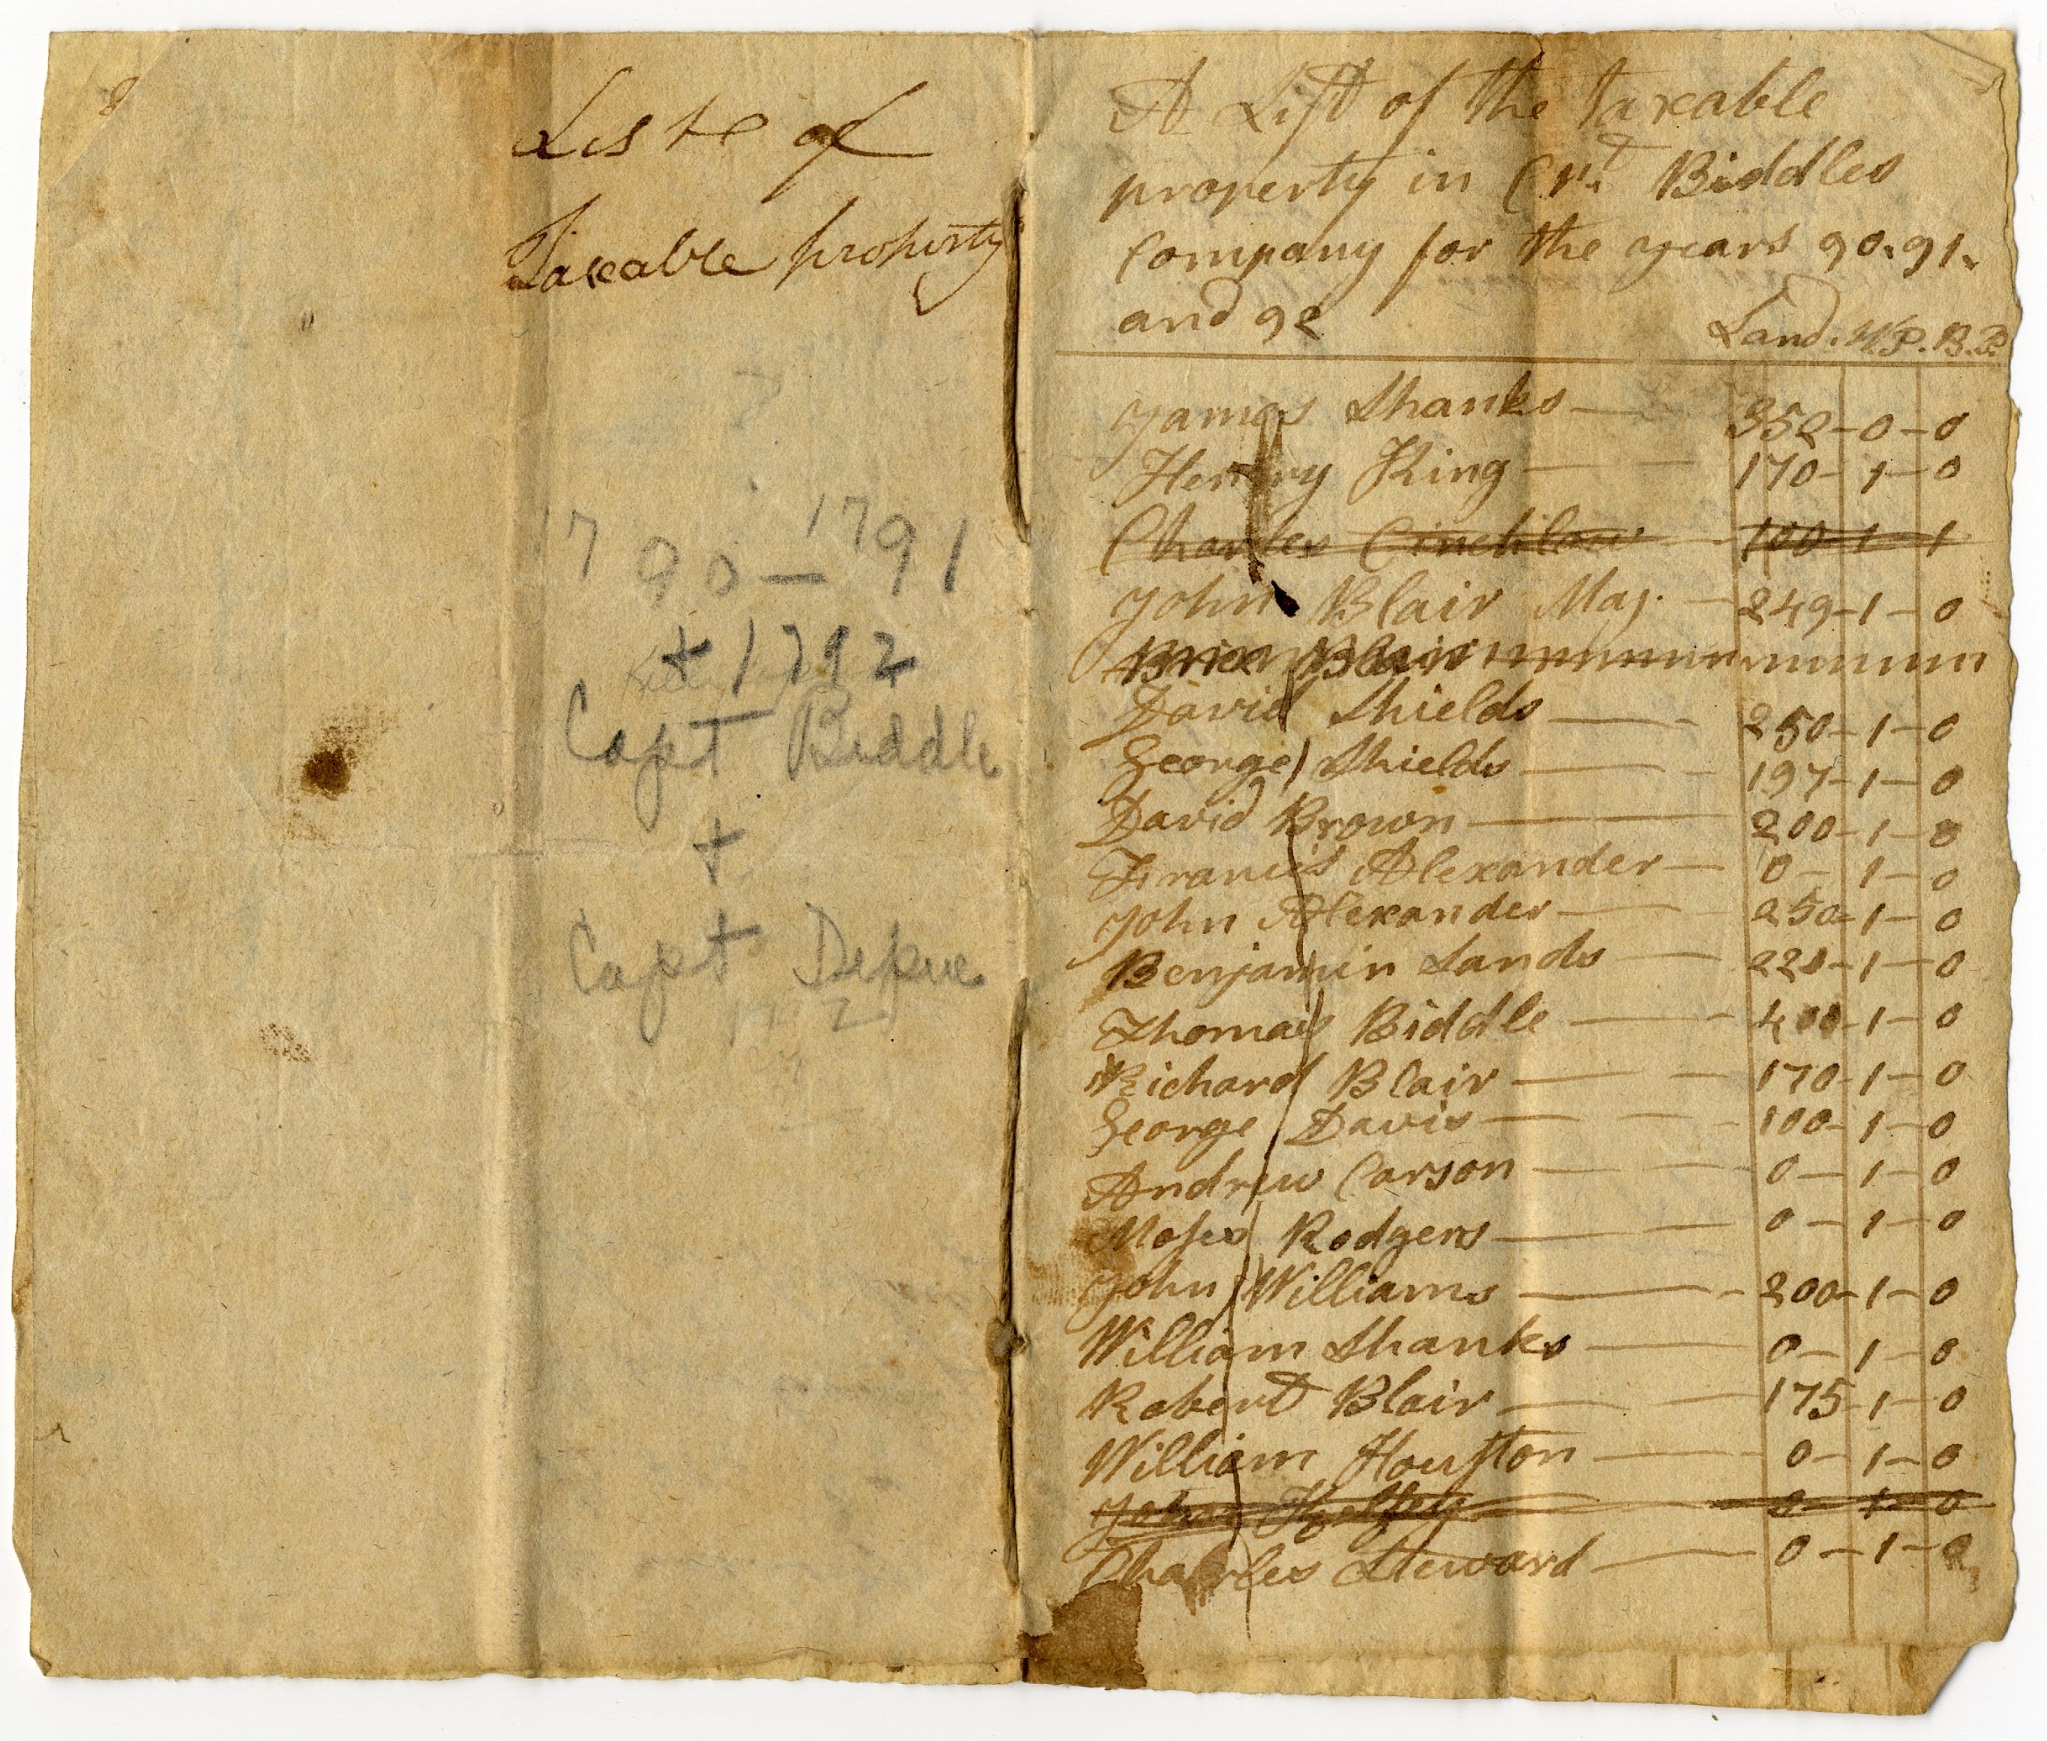 Liste of
Taxable property
1790 — 1791
+ 1792
Capt Biddle
+
Capt Depue
1792
A List of the taxable
property in Cpt. Biddles
Company for the years 90. 91.
and 92
Land. W.P. B.P.
James Shanks — 350 — 0 — 0
Henry King — — 170 — 1 — 0
Charles 100 — 1 — 1
John Blair Maj. — 249 — 1 — 0
Brice Blair
David Shields — — 250 — 1 — 0
George Shields — — 197 — 1 — 0
David Brown — — 200 — 1 — 0
Francis Alexander — 0 — 1 — 0
John Alexander — — 250 — 1 — 0
Benjamin Sands — — 220 — 1 — 0
Thomas Biddle — — 400 — 1 — 0
Richard Blair — — 170 — 1 — 0
George Davis — — 100 — 1 — 0
Andrew Carson — — 0 — 1 — 0
Moses Rodgers — — 0 — 1 — 0
John Williams — — 200 — 1 — 0
William Shanks — — 0 — 1 — 0
Robert Blair — — 175 — 1 — 0
William Houston — — 0 — 1 — 0
John Kelsey 0 — 1 — 0
Charles Steward — — 0 — 1 — 0